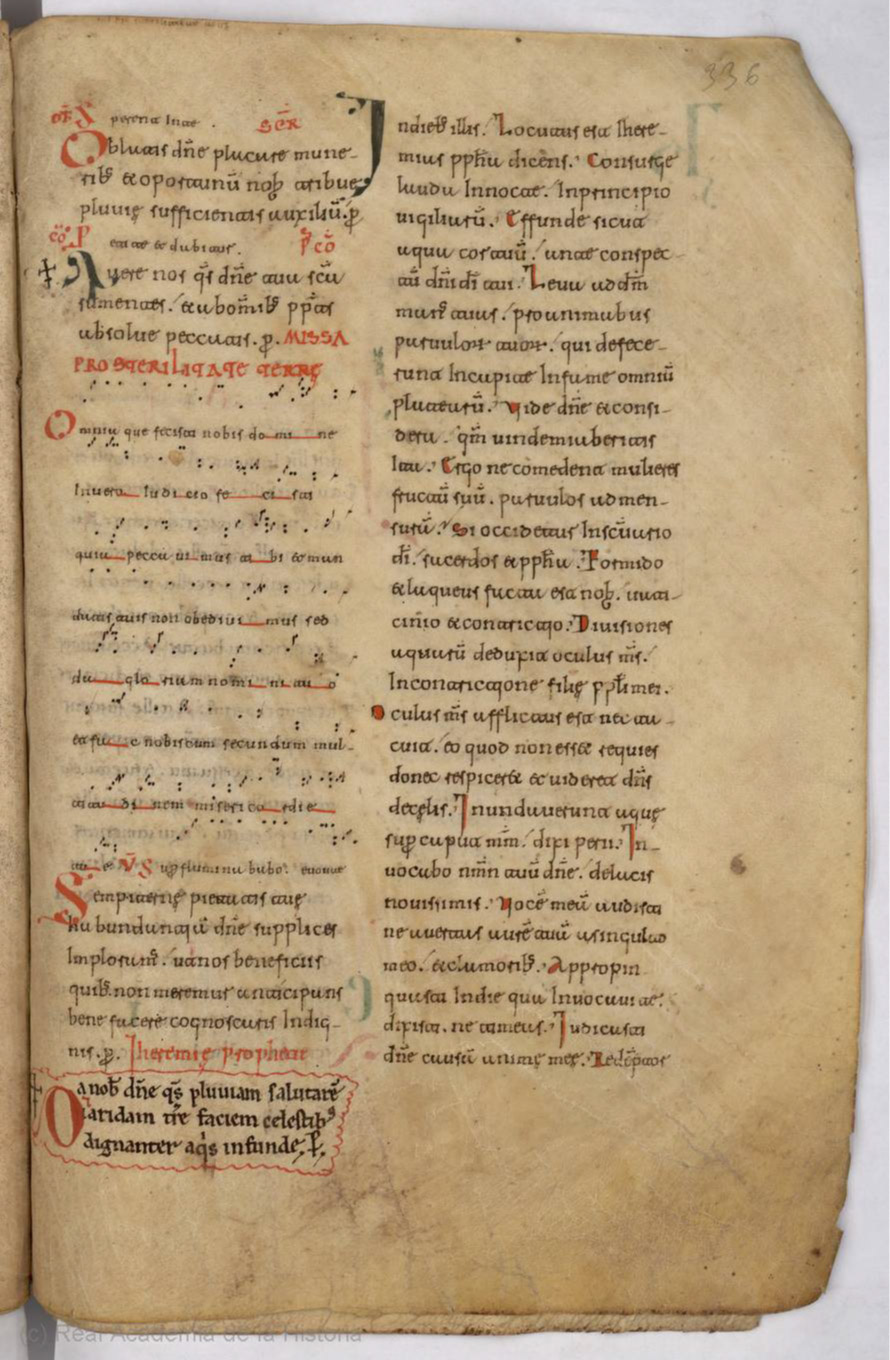 of̄ S perent in te . SCR̄
Oblatis dn̄e placare mune-
rib; & oportunū nob̄ tribue
pluvię sufficientis auxiliū. p̄
cō P etite & dabitur. P̄ cō
Tuere nos qs̄ dn̄e tua scā
sumentes. & ab omīb; pp̄tis
absolve peccatis. p̄. MISSA
PRO STERILITATE TERRĘ
Omnia que fecisti nobis do mi ne
In vero Iudi cio fe ci sti
quia pecca vi mus ti bi & man
datis tuis non obedivi mus sed
da glo riam nomi ni tu o
et fa c nobiscum secundum mul-
titu di nem miserico rdie
tu e V̄S Up̄ flumina babi. evovae
Sempiternę pietatis tuę
habundantiā dn̄e supplices
Imploram̄. ut nos beneficiis
quib; non meremur anticipans
bene facere cognoscaris Indig-
nis. p̄. Iheremię prophetę
Da nob̄ dn̄e qs̄ pluviam salutarē
& aridam tr̄e faciem celestib;
dignanter aqis infunde. P̄.
336
Indieb; illis. Locutus est Ihere-
mias pph̄a dicens. Consurge
lauda Innocte. Inprincipio
vigiliarū. Effunde sicut
aqua cor tuū. ante conspec-
tū dn̄i dī tui. Leva ad dm̄
manus tuas. pro animabus
parvulorum tuorum. qui defece-
runt Incapite Infame omniū
platearū. Vide dn̄e & consi-
dera. qm̄ vindemiaberis
Ita. Ergo ne comedent mulieres
fructū suū. parvulos ad men-
surā. Si occidetur Inscūario
dī. sacerdos & pph̄a. Formido
& laqueus facta est nob̄. vati-
cinio & contricio. Divisiones
aquarū deduxit oculus ms̄.
Incontricione filię ppl̄i mei.
Oculus ms̄ afflictus est nec ta-
cuit. eo quod non esset requies
donec respiceret et videret dn̄s
decęlis. Inundaverunt aquę
sup̄ caput mm̄. dixi perii. In-
vocabo nm̄n tuū dn̄e. delacis
novissimis. Vocē meā audisti
ne avertas aurē tuā a singultuo
meo. & clamorib;. Appropin
quasti Indie qua Invocavi te.
dixisti. ne timeas. Iudicasti
dn̄e causā animę meę. Redēptor
(c) Real Academia de la Historia